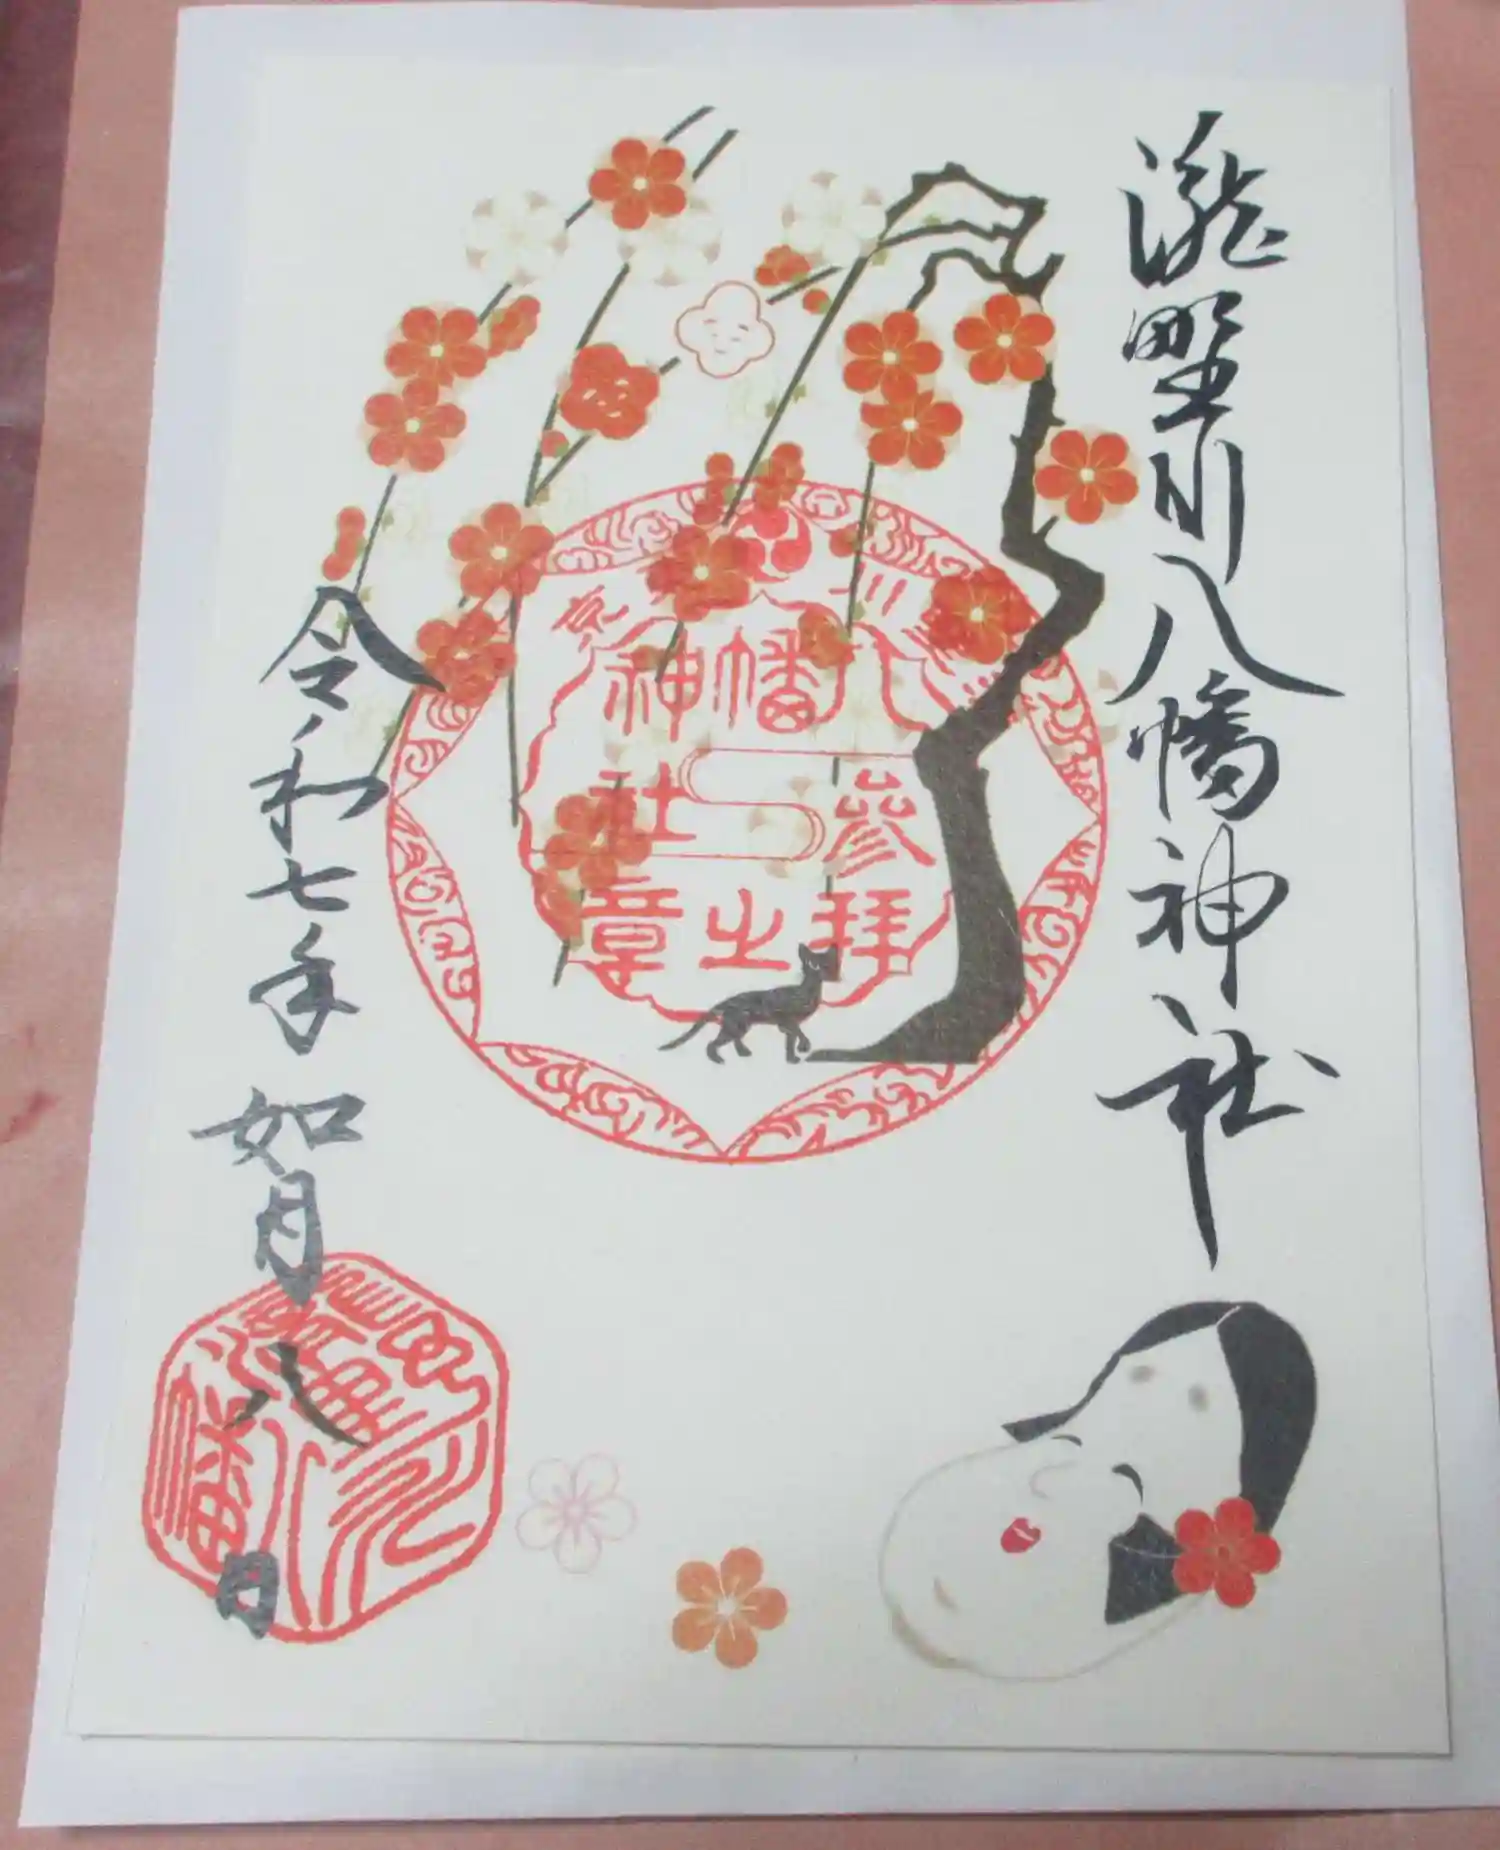 瀧野川八幡神社
八幡神社
参拝之章
令和七年如月八日